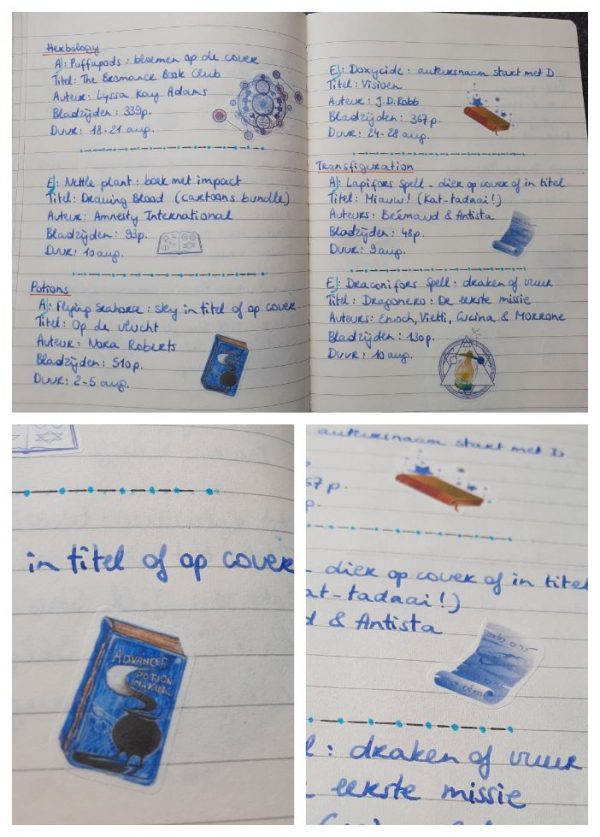 Herbology
A): Puffapods: bloemen op de cover
Titel: The Bromance Book Club
Auteur: Lyssa Kay Adams
Bladzijden: 339p.
Duur: 18-21 aug.
E): Nettle plant: boek met impact
Titel: Drawing Blood (cartoons bundle)
Auteur: Amnesty International
Bladzijden: 93p.
Duur: 10 aug.
Potions
A): Flying Seahorse: sky in titel of op cover
Titel: Op de vlucht
Auteur: Nora Roberts
Bladzijden: 510p.
Duur: 2-5 aug.
E): Doxycide: auteursnaam start met D
Titel: Visioen
Auteur: J.D. Robb
Bladzijden: 367p.
Duur: 24-28 aug.
Transfiguration
A): Lapifors Spell - dier op cover of in titel
Titel: Miauw! (Kat-tadaai!)
Auteurs: Bernard & Antista
Bladzijden: 48p.
Duur: 9 aug.
E): Draconifors Spell: draken of vuur
Titel: Dragonero: De eerste missie
Auteurs: Enoch, Vietti, Cucina & Morrone
Bladzijden: 130p.
Duur: 10 aug.
in titel of op cover
ADVANCED
POTION
MAKING
auteursnaam start met D
67p.
p.
- dier op cover of in titel
Kat-tadaai!)
d & Antista
l: draken of vuur
eerste missie